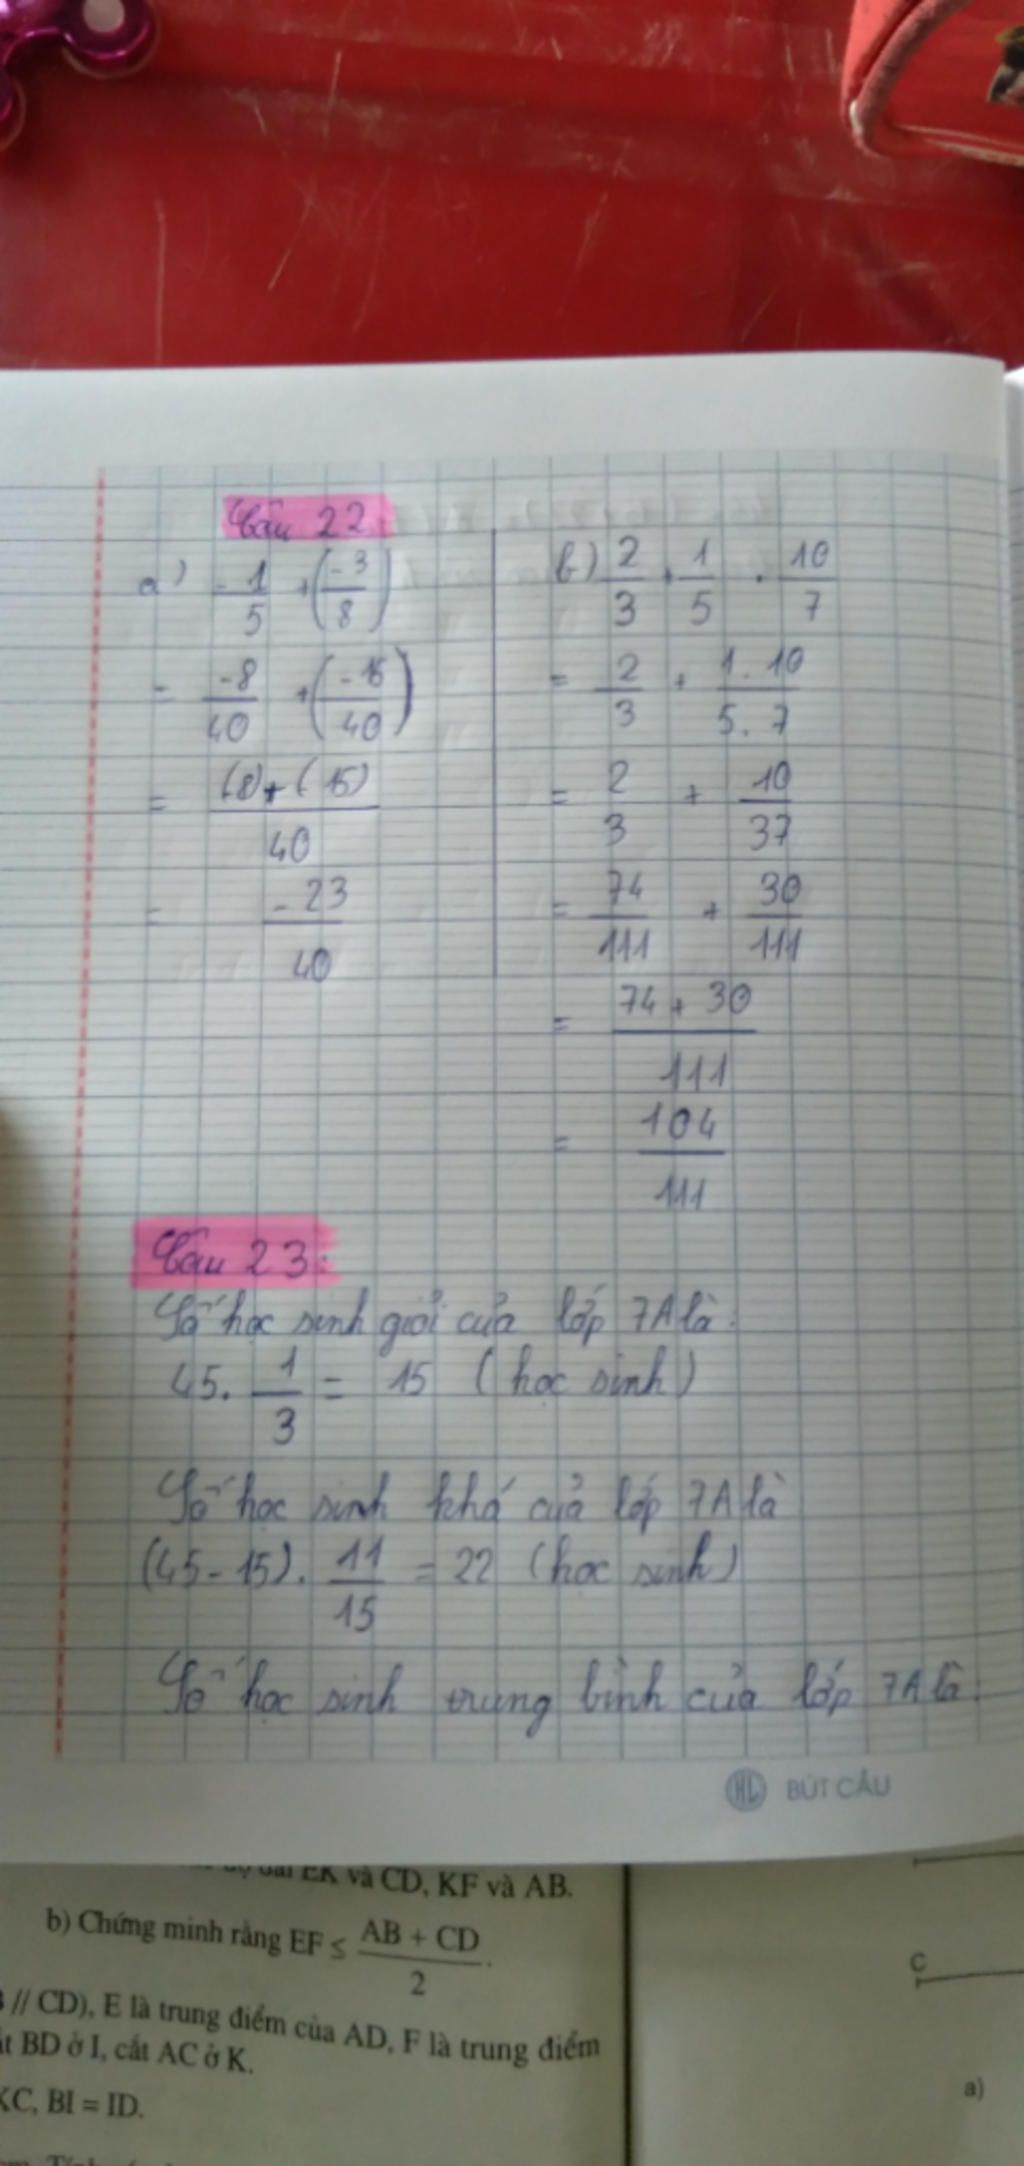 Câu 22:
a) -1/5 + (-3/8)
= -8/40 + (-15/40)
= (8) + (15)/40
= -23/40
b) 2/3 + 1/5 . 10/7
= 2/3 + 1.10/5.7
= 2/3 + 10/37
= 74/111 + 30/111
= 74 + 30/111
= 104/111
Câu 23:
Số học sinh giỏi của lớp 7A là:
45. 1/3 = 15 (học sinh)
Số học sinh khá của lớp 7A là
(45-15). 11/15 = 22 (học sinh)
Số học sinh trung bình của lớp 7A là
HL BÚT CÂU
EK và CD, KF và AB.
b) Chứng minh rằng EF ≤ AB + CD/2.
// CD), E là trung điểm của AD, F là trung điểm
BD ở I, cắt AC ở K.
KC, BI = ID.
C
a)